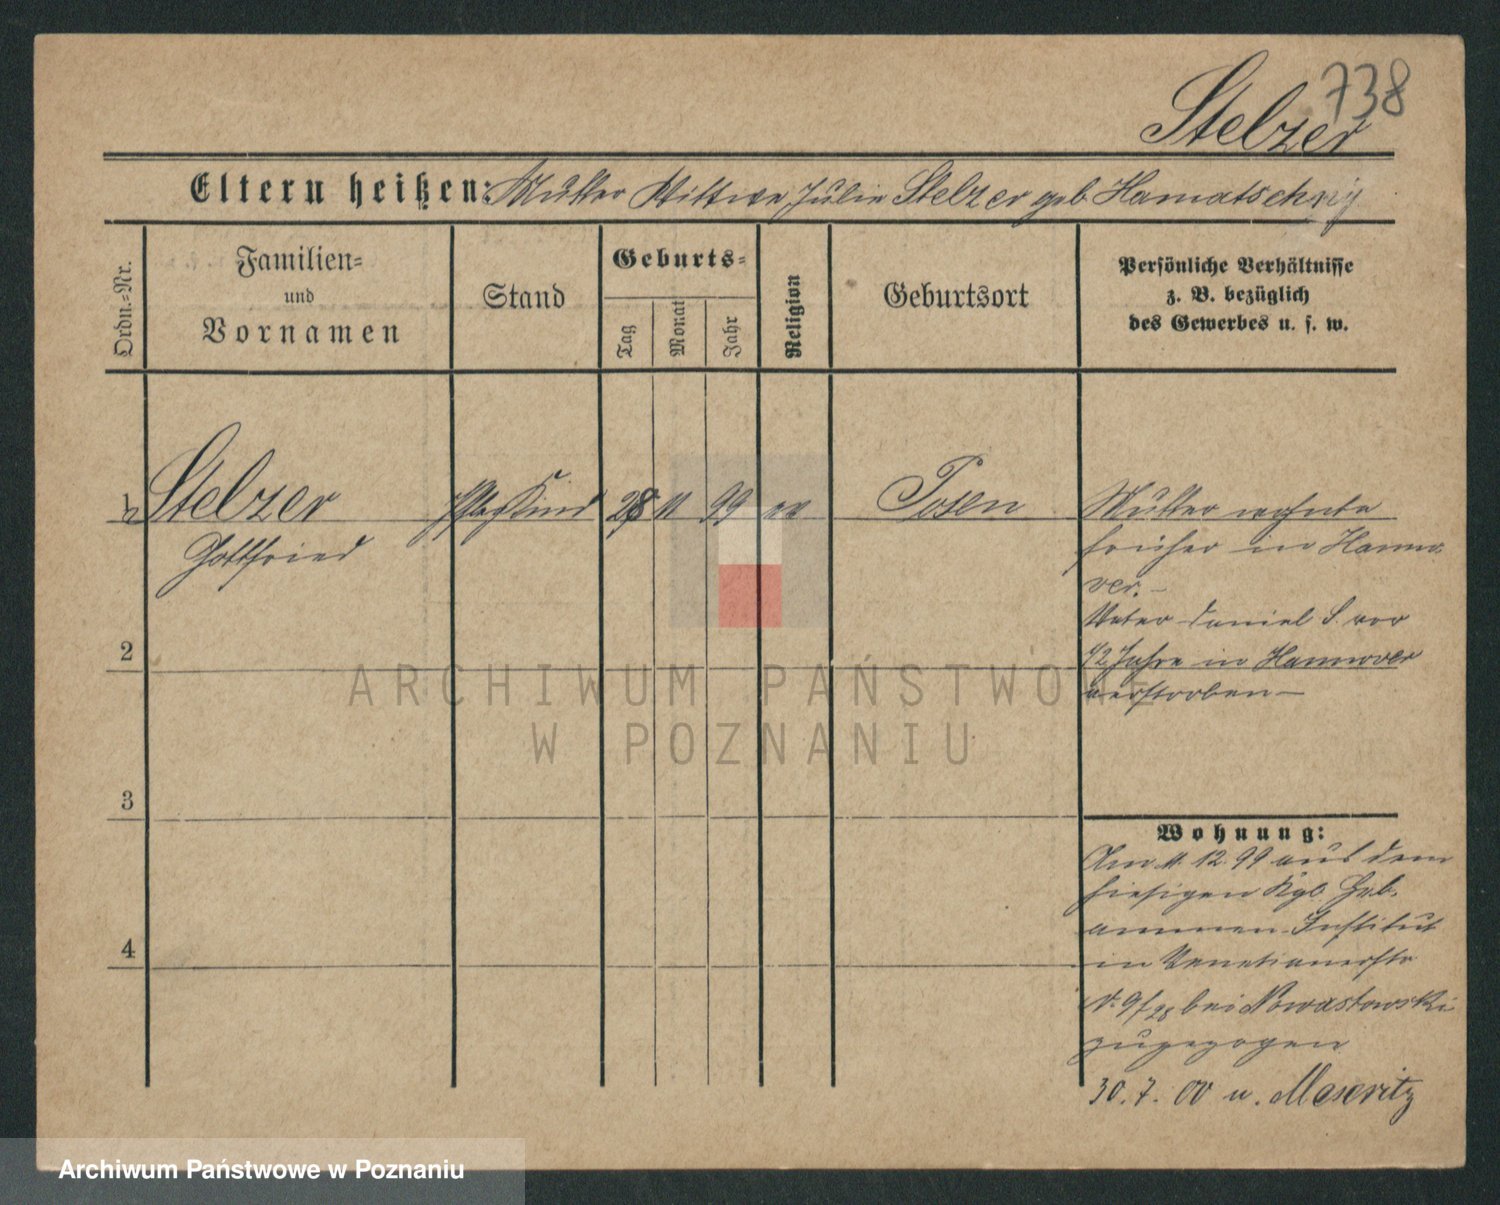 738
Stelzer
Eltern heißen: Mutter Wittwe Julie Stelzer geb. Hamatschzig
Ordn.=Nr.
Familien=
und
Vornamen
Stand
Geburts=
Tag
Monat
Jahr
Religion
Geburtsort
Persönliche Verhältnisse
z. B. bezüglich
des Gewerbes u. s. w.
1 Stelzer Pflegkind 28 11 99 ev Posen
Gottfried
Mutter wohnte
früher in Hanno-
ver. –
Vater Daniel S. vor
1/2 Jahre in Hannover
verstorben –
2
3
4
Wohnung:
Am 11. 12. 99 aus dem
hiesigen Kgl. Heb-
ammen-Institut
in Venetianerstr
bei Nowastowski
zugezogen
30. 7. 00 n. Meseritz
ARCHIWUM PAŃSTWOWE
W POZNANIU
Archiwum Państwowe w Poznaniu